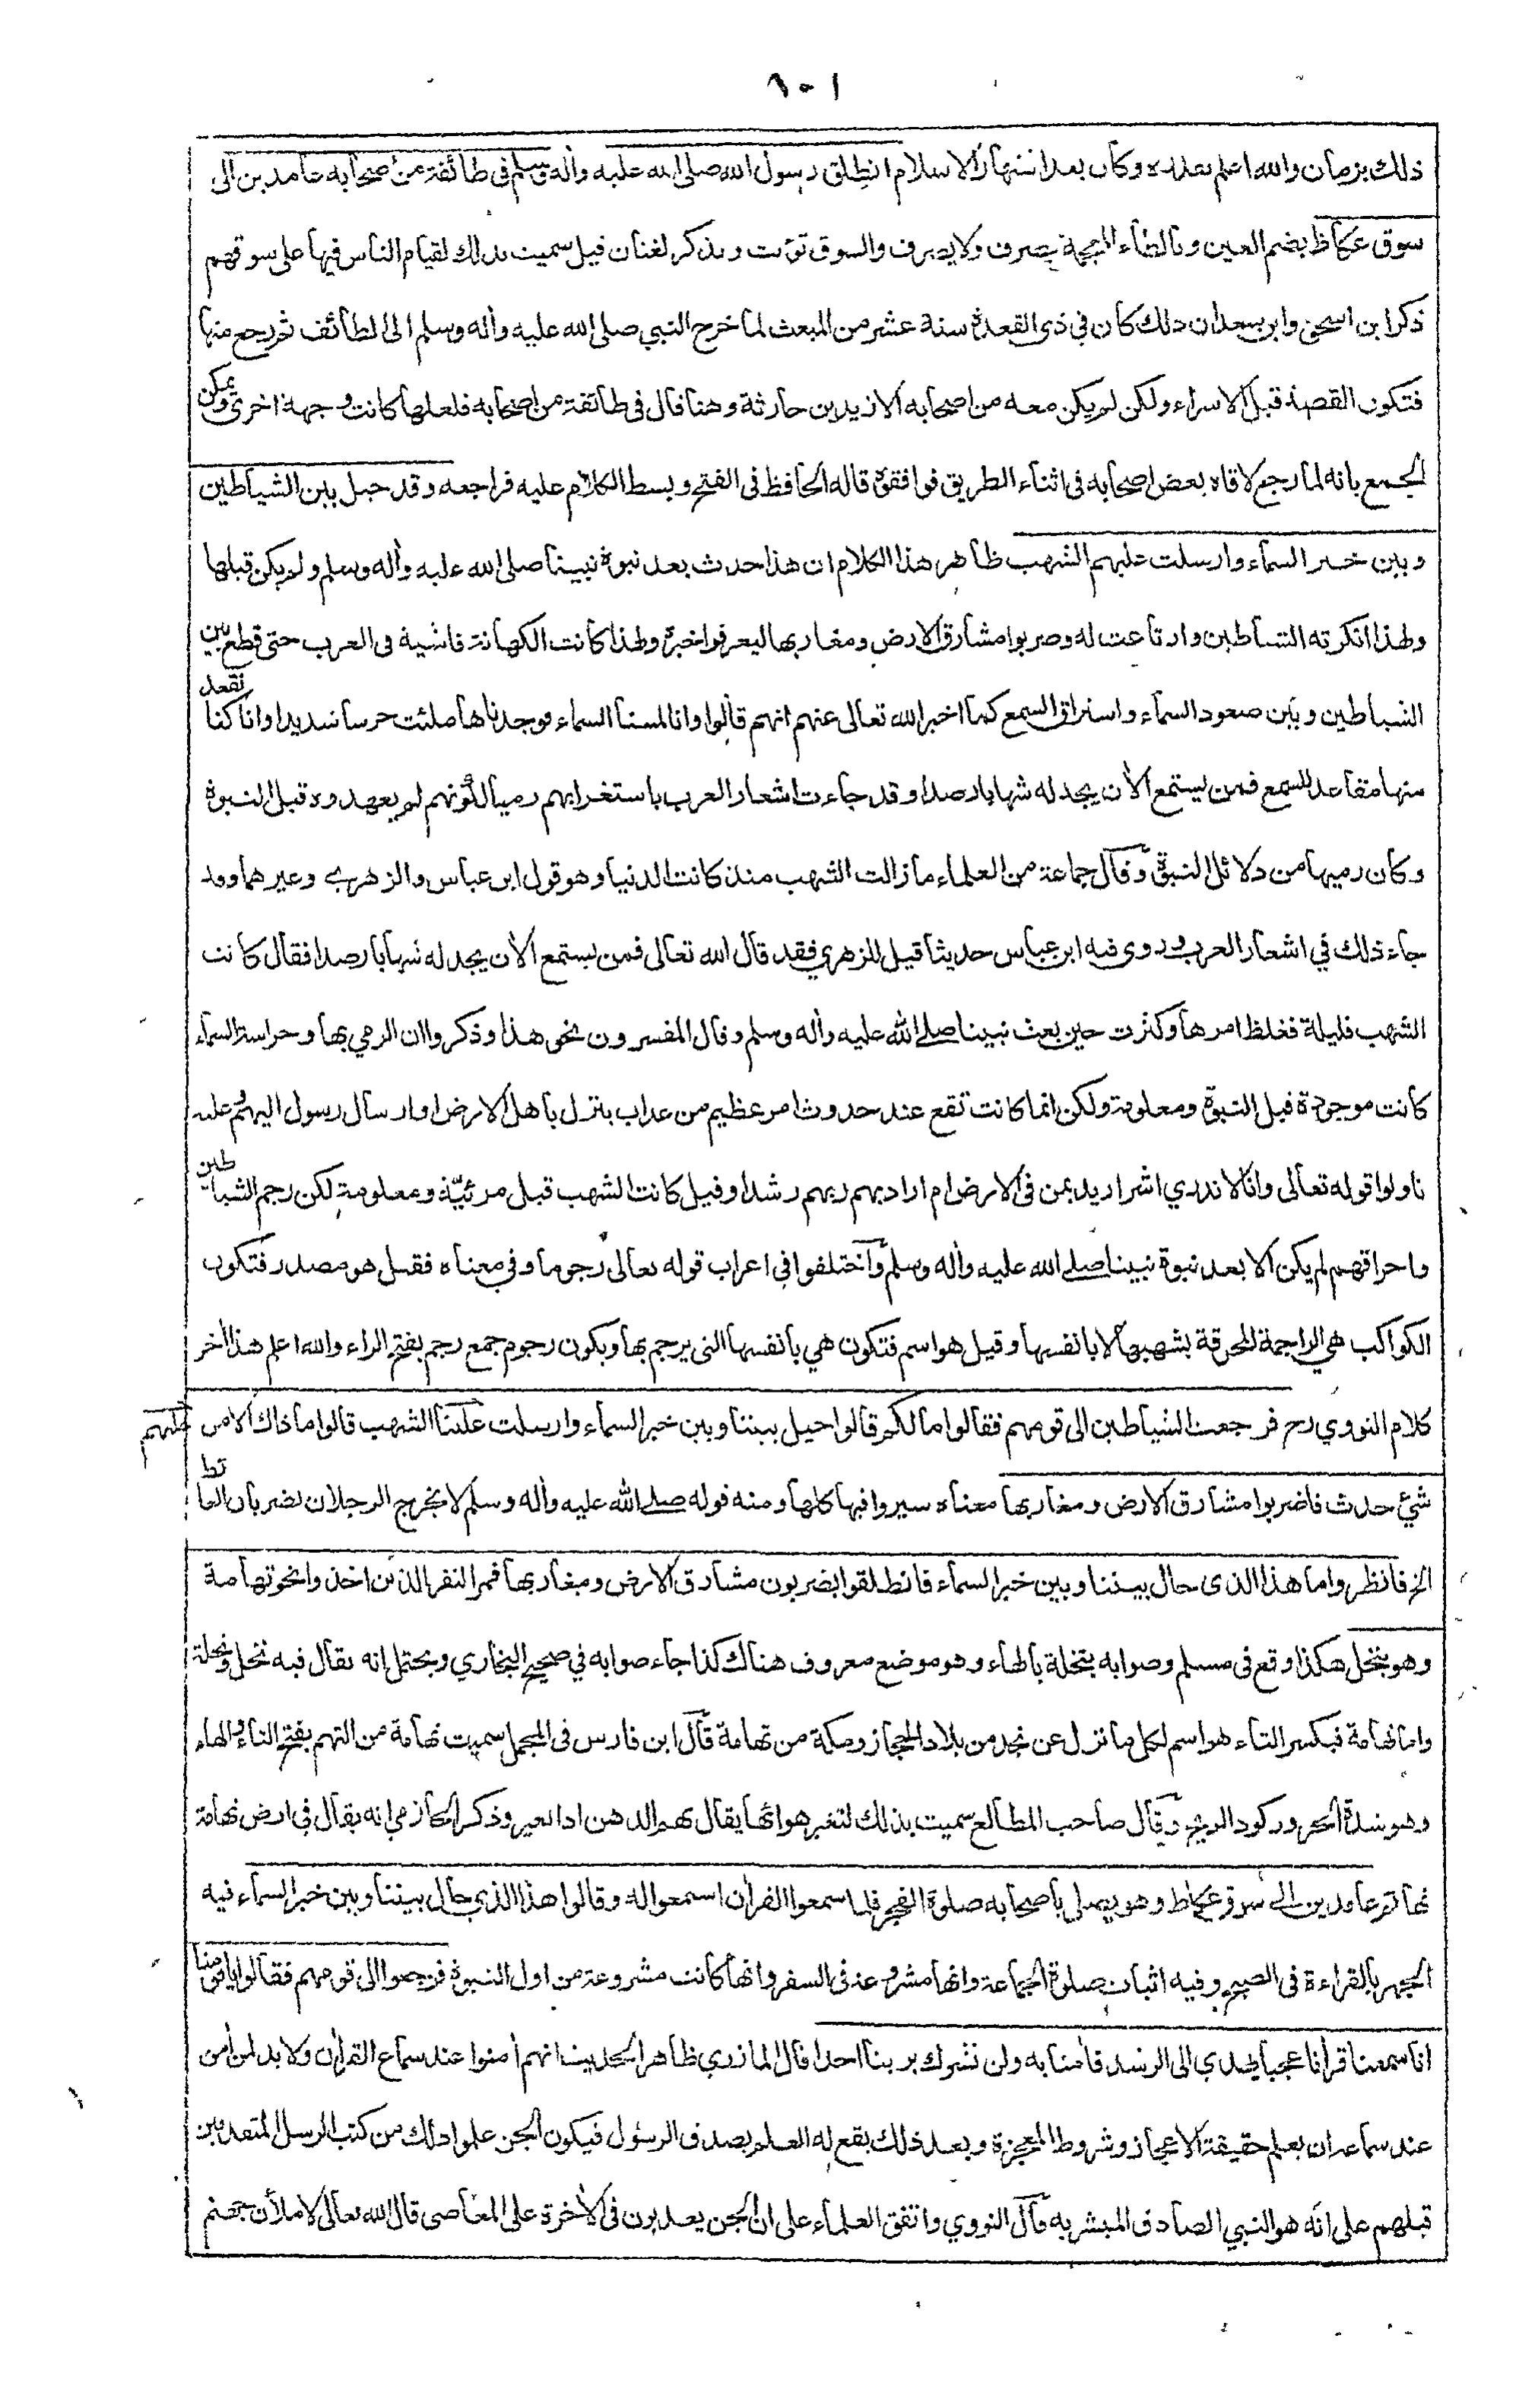 ١٠١
ذلك بزمان والله اعلم بقدره وكان بعد اشتهار الاسلام انطلق رسول الله صلى الله عليه واله وسلم في طائفة من صحابه عامدين الى
سوق عكاظ بضم العين وبالظاء المعجمة يصرف ولا يصرف والسوق تؤنث وتذكر لغتان قيل سميت بذلك لقيام الناس فيها على سوقهم
ذكر ابن اسحق وابن سعد ان ذلك كان في ذي القعدة سنة عشر من المبعث لما خرج النبي صلى الله عليه واله وسلم الى الطائف ثم رجع منها
فتكون القصة قبل الاسراء ولكن لم يكن معه من اصحابه الا زيد بن حارثة وهنا قال في طائفة من اصحابه فلعلها كانت وجهة اخرى ويمكن
الجمع بانه لما رجع لاقاه بعض اصحابه في اثناء الطريق فوافقوه قاله الحافظ في الفتح وبسط الكلام عليه فراجعه وقد حيل بين الشياطين
وبين خبر السماء وارسلت عليهم الشهب ظاهر هذا الكلام ان هذا حدث بعد نبوة نبينا صلى الله عليه واله وسلم ولم يكن قبلها
ولهذا انكرته الشياطين وارتاعت له وضربوا مشارق الارض ومغاربها ليعرفوا خبره ولهذا كانت الكهانة فاشية في العرب حتى قطع بين
الشياطين وبين صعود السماء واستراق السمع كما اخبر الله تعالى عنهم انهم قالوا وانا لمسنا السماء فوجدناها ملئت حرسا شديدا وانا كنا نقعد
منها مقاعد للسمع فمن يستمع الأن يجد له شهابا رصدا وقد جاءت اشعار العرب باستغرابهم رميها لكونهم لم يعهدوه قبل النبوة
وكان رميها من دلائل النبوة وقال جماعة من العلماء ما زالت الشهب منذ كانت الدنيا وهو قول ابن عباس والزهري وغيرهما وقد
جاء ذلك في اشعار العرب وروى فيه ابن عباس حديثا قيل للزهري فقد قال الله تعالى فمن يستمع الأن يجد له شهابا رصدا فقال كانت
الشهب قليلة فغلظ امرها وكثرت حين بعث نبينا صلى الله عليه واله وسلم وقال المفسرون نحو هذا وذكروا ان الرمي بها وحراسة السماء
كانت موجودة قبل النبوة ومعلومة ولكن انما كانت تقع عند حدوث امر عظيم من عذاب ينزل باهل الارض او ارسال رسول اليهم وعليه
تاولوا قوله تعالى وانا لا ندري اشر اريد بمن في الارض ام اراد بهم ربهم رشدا وقيل كانت الشهب قبل مرئية ومعلومة لكن رجم الشياطين
واحراقهم لم يكن الا بعد نبوة نبينا صلى الله عليه واله وسلم واختلفوا في اعراب قوله تعالى رجوما وفي معناه فقيل هو مصدر فتكون
الكواكب هي الراجمة المحرقة بشهبها لا بانفسها وقيل هو اسم فتكون هي بانفسها التي يرجم بها ويكون رجوم جمع رجم بفتح الراء والله اعلم هذا أخر
كلام النووي رح فرجعت الشياطين الى قومهم فقالوا ما لكم قالوا حيل بيننا وبين خبر السماء وارسلت علينا الشهب قالوا ما ذاك الا من
عليهم
شيء حدث فاضربوا مشارق الارض ومغاربها معناه سيروا فيها كلها ومنه قوله صلى الله عليه واله وسلم لا يخرج الرجلان يضربان الغائط
الخ فانظروا ما هذا الذي حال بيننا وبين خبر السماء فانطلقوا يضربون مشارق الارض ومغاربها فمر النفر الذين اخذوا نحو تهامة
وهو بنخل هكذا وقع في مسلم وصوابه بنخلة بالهاء وهو موضع معروف هناك كذا جاء صوابه في صحيح البخاري ويحتمل انه يقال فيه نخل ونخلة
واما تهامة فبكسر التاء هو اسم لكل ما نزل عن نجد من بلاد الحجاز ومكة من تهامة قال ابن فارس في المجمل سميت تهامة من التهم بفتح التاء والهاء
وهو شدة الحر وركود الريح وقال صاحب المطالع سميت بذلك لتغير هوائها يقال تهم الدهن اذا تغير وذكر الحازمي انه يقال في ارض تهامة
تهائم عامدين الى سوق عكاظ وهو يصلي باصحابه صلوة الفجر فلما سمعوا القرأن استمعوا له وقالوا هذا الذي حال بيننا وبين خبر السماء فيه
الجهر بالقراءة في الصبح وفيه اثبات صلوة الجماعة وانها مشروعة في السفر وانها كانت مشروعة من اول النبوة فرجعوا الى قومهم فقالوا يا قومنا
انا سمعنا قرأنا عجبا يهدي الى الرشد فأمنا به ولن نشرك بربنا احدا قال المازري ظاهر الحديث انهم أمنوا عند سماع القرأن ولا بد لمن أمن
عند سماعه ان يعلم حقيقة الاعجاز وشروط المعجزة وبعد ذلك يقع له العلم بصدق الرسول فيكون الجن علموا ذلك من كتب الرسل المتقدمين
قبلهم على انه هو النبي الصادق المبشر به قال النووي واتفق العلماء على ان الجن يعذبون في الأخرة على المعاصي قال الله تعالى لاملأن جهنم